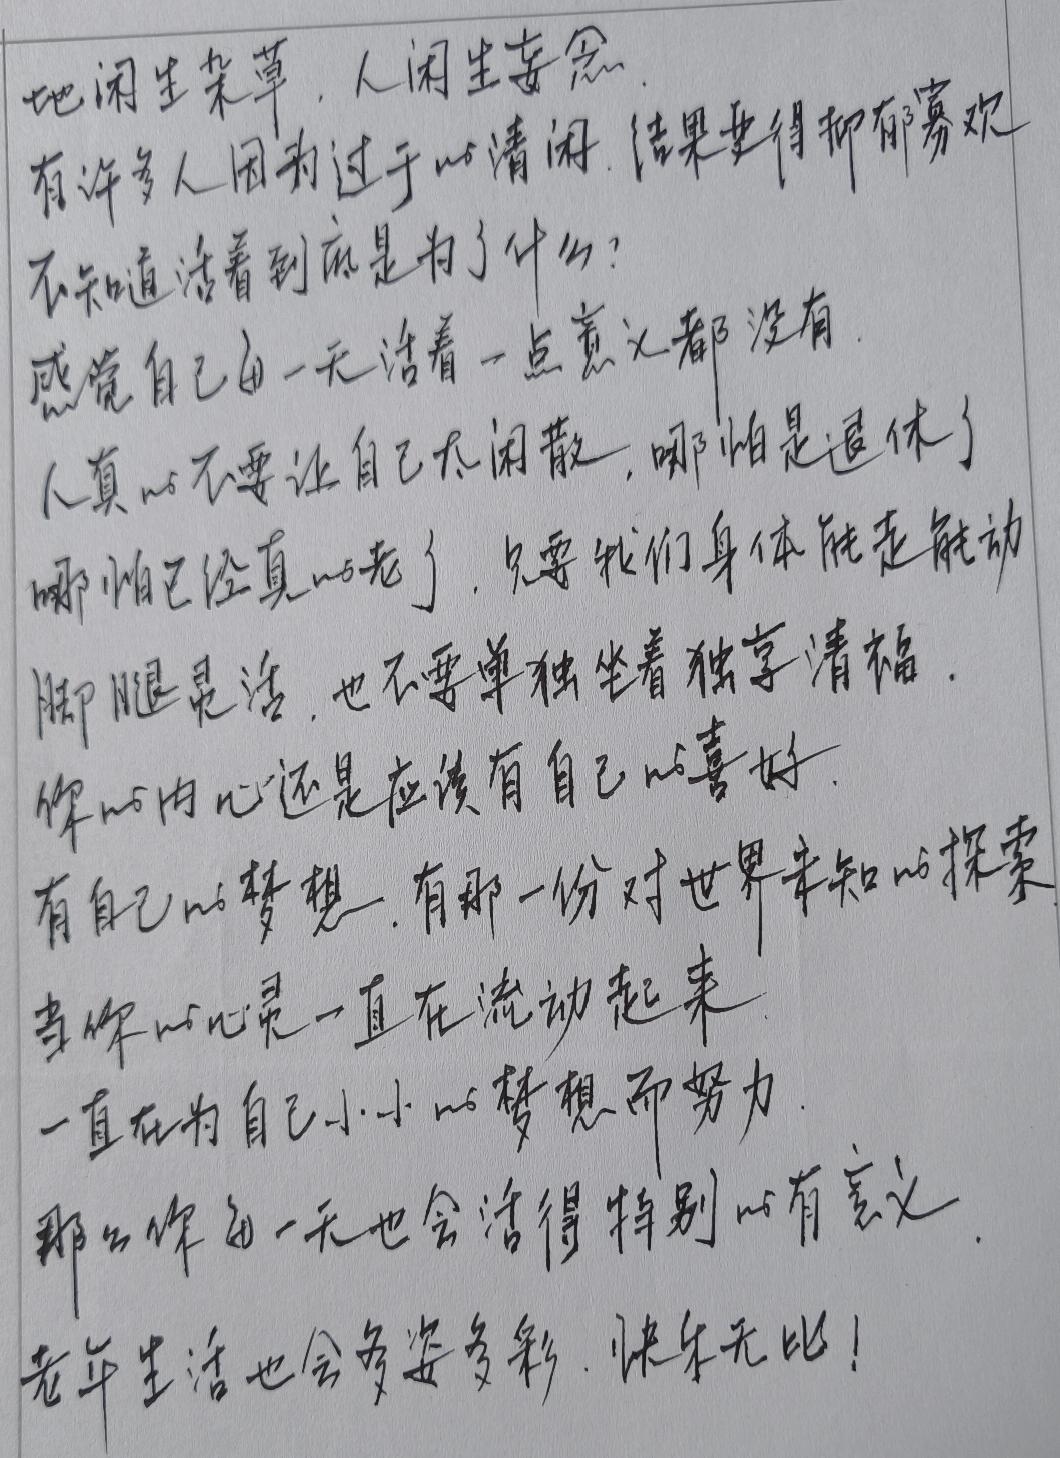 地闲生杂草.人闲生妄念.
有许多人因为过于的清闲.结果变得抑郁寡欢
不知道活着到底是为了什么?
感觉自己每一天活着一点意义都没有.
人真的不要让自己太闲散,哪怕是退休了
哪怕已经真的老了,只要我们身体能走能动
脚腿灵活,也不要单独坐着独享清福.
你的内心还是应该有自己的喜好.
有自己的梦想.有那一份对世界未知的探索.
当你的心灵一直在流动起来.
一直在为自己小小的梦想而努力.
那么你每一天也会活得特别的有意义.
老年生活也会多姿多彩.快乐无比!